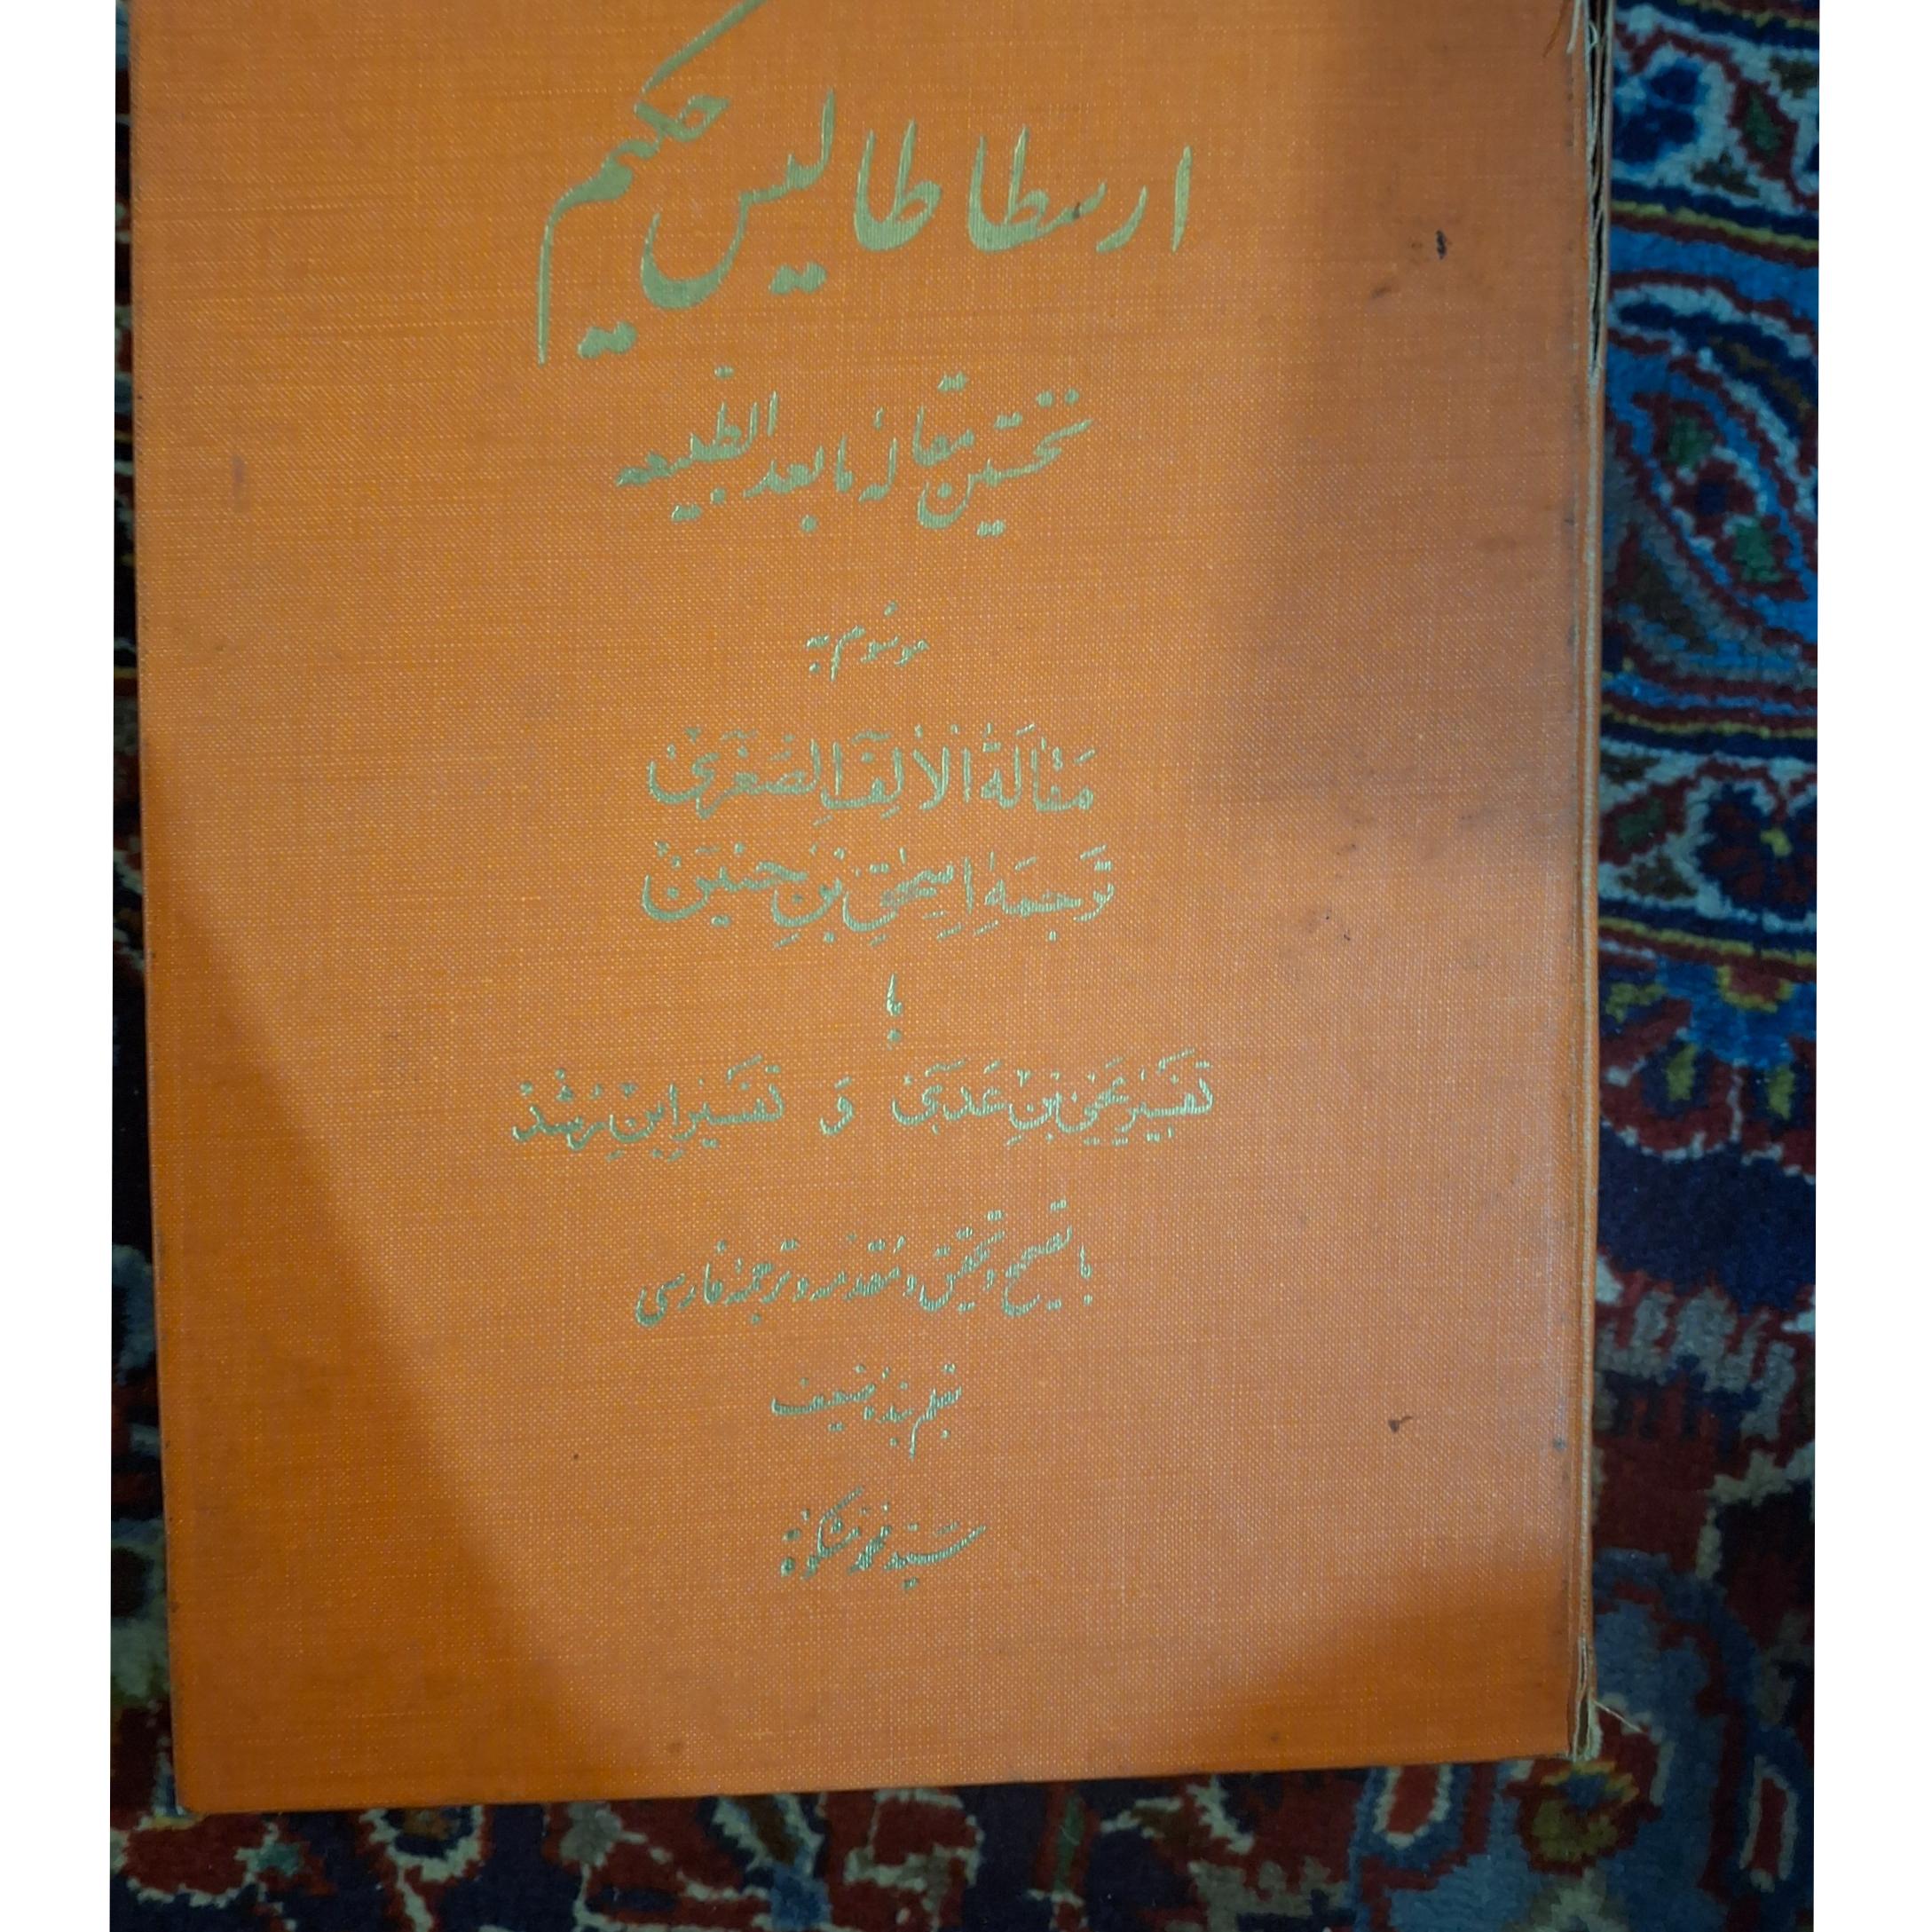 ارسطاطالیس حکیم
نخستین مقالهٔ ما بعد الطبیعه
موسوم به
مَقالَةُ الْاَلِفِ الصُّغْریٰ
تَرجمَهٔ اِسحٰق بْنِ حنَین
با
تفسیر یَحییَ بْنِ عَدِیّ وَ تفسیرِ ابْنِ رُشْد
با تصحیح و تحقیق و مُقدمه و ترجمهٔ فارسی
بقلم بندهٔ ضعیف
سیّد محمّد مشکوة